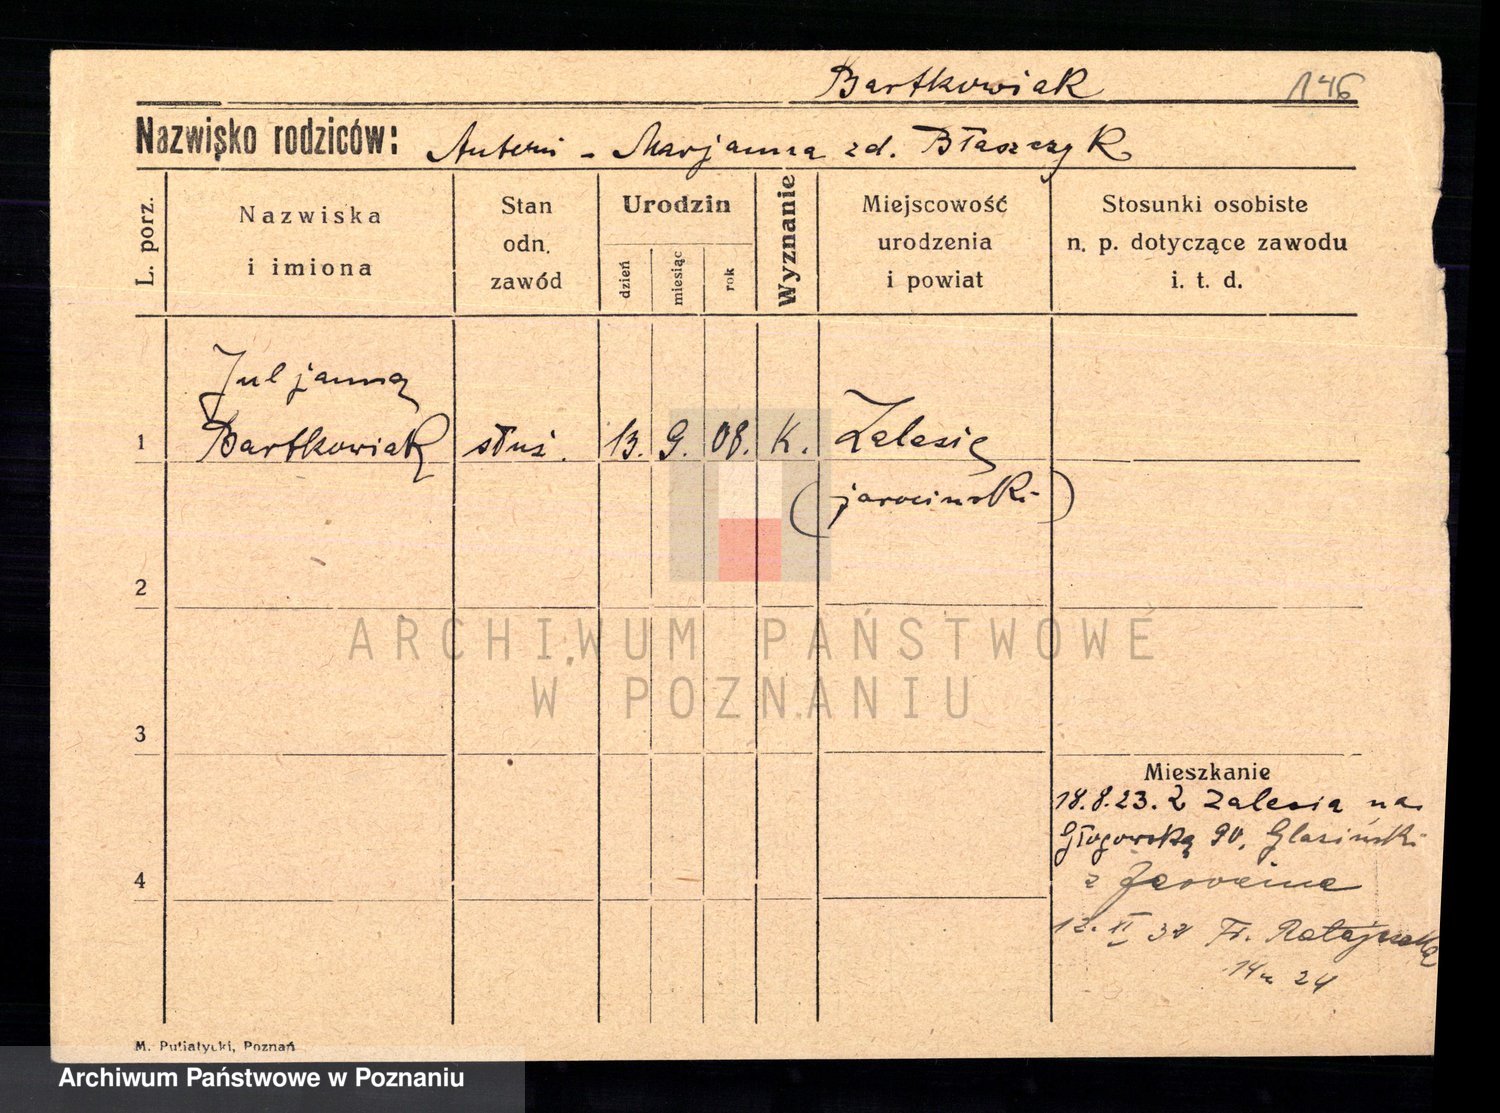 Bartkowiak 146
Nazwisko rodziców: Antoni - Marjanna zd. Błaszczyk
L. porz.
Nazwiska
i imiona
Stan
odn.
zawód
Urodzin
dzień
miesiąc
rok
Wyznanie
Miejscowość
urodzenia
i powiat
Stosunki osobiste
n. p. dotyczące zawodu
i. t. d.
Juljanna
1 Bartkowiak służ. 13. 9. 08. K. Zalesie
(jarociński)
2
ARCHIWUM PAŃSTWOWE
W POZNANIU
3
Mieszkanie
18.8.23. z Zalesia na
Głogowską 90, Glasiński
4 z Jarocina
12. XI 32 Fr. Ratajczaka
14 24
M. Putiatycki, Poznań
Archiwum Państwowe w Poznaniu